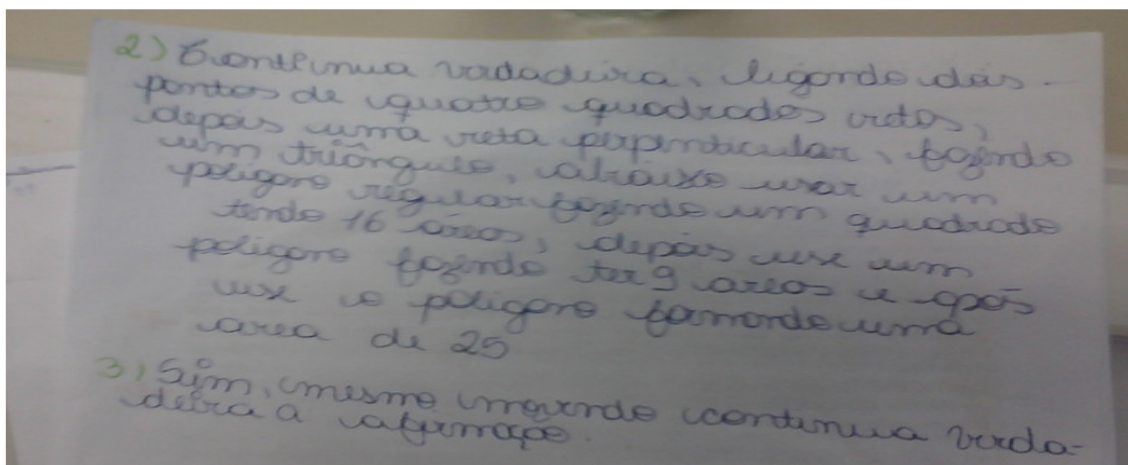 2) Continua verdadeira, ligando dois
pontos de quatro quadrados retos,
depois uma reta perpendicular, fazendo
um triângulo, abaixo usar um
poligono regular fazendo um quadrado
tendo 16 áreas, depois use um
poligono fazendo ter 9 areas e após
use o poligono formando uma
area de 25
3) Sim, mesmo movendo continua verda-
deira a afirmação.